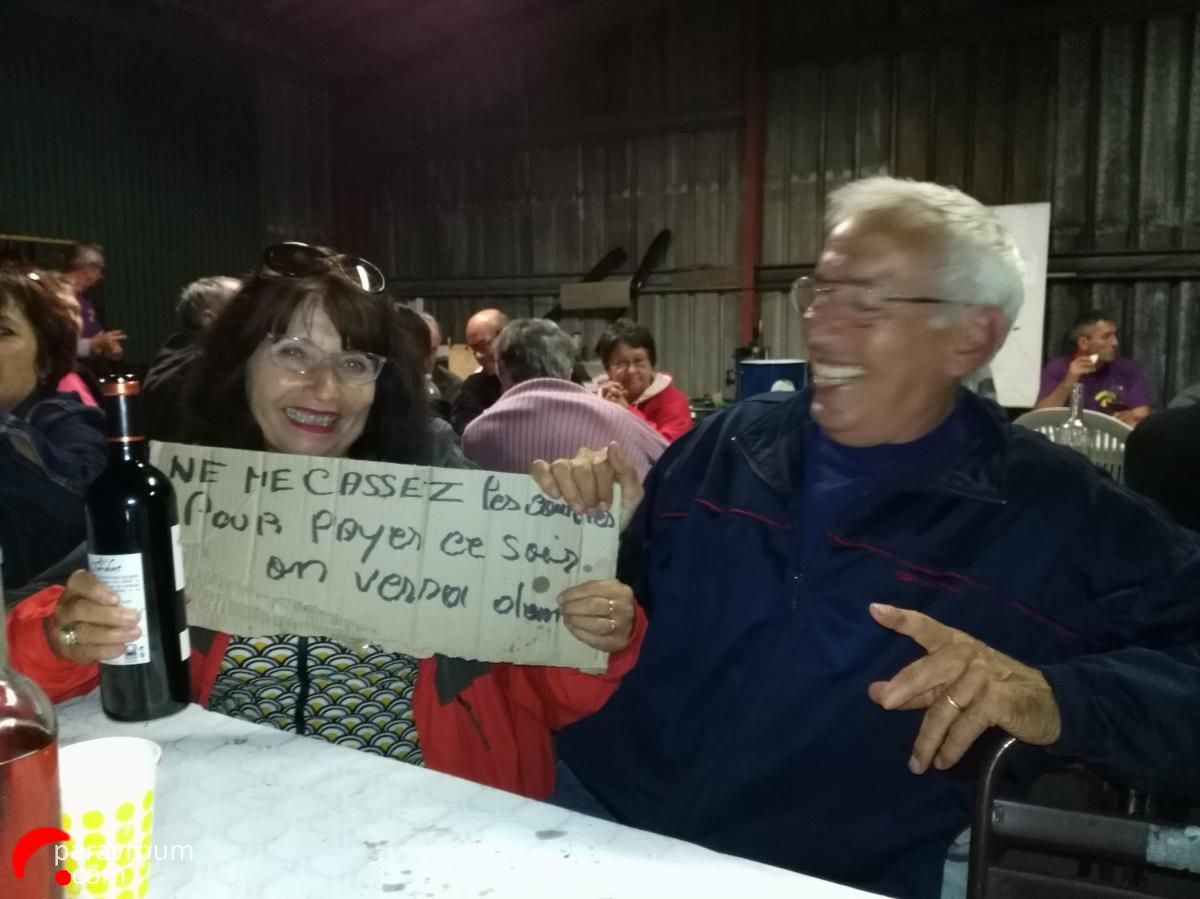 NE ME CASSEZ les
Pour payer ce soir.
on verra
paravroum
.com